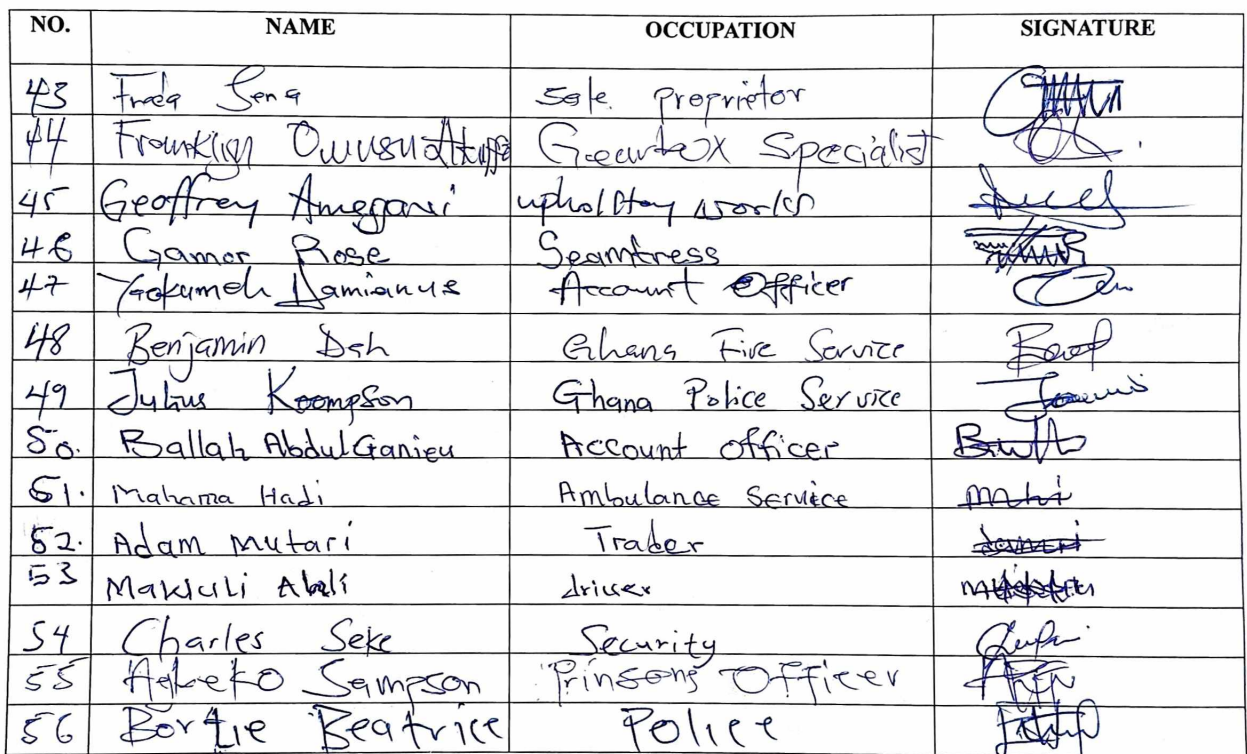 NO. NAME OCCUPATION SIGNATURE
43 Freda Sena Sole. Proprietor
44 Franklign Owusu Gearbox Specialist
45 Geoffrey Amegavi upholstry works
46 Gamor Rose Seamtress
47 Damianus Account Officer
48 Benjamin Deh Ghana Fire Service
49 Julius Koompson Ghana Police Service
50. Ballah Abdul Ganieu Account officer
51. Mahama Hadi Ambulance Service
52. Adam Mutari Trader
53 driver
54 Charles Seke Security
55 Agbeko Sampson Prinsons Officer
56 Bortie Beatrice Police